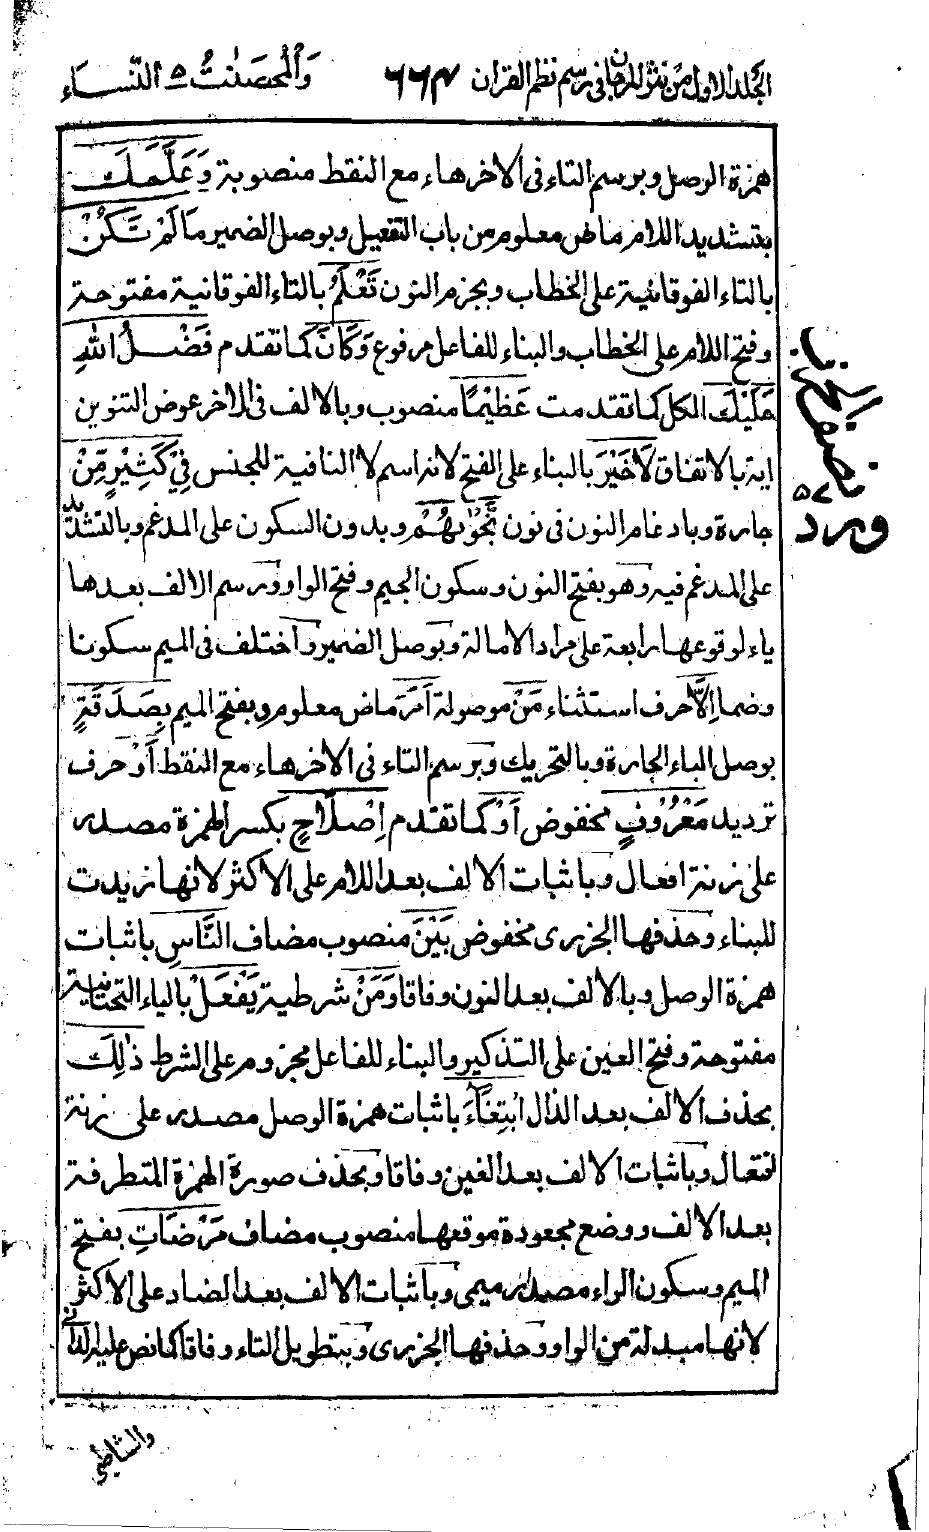 الجلد الاول من نثر المرجان فى رسم نظم القران ٦٦٧ والمحصنت ٥ النساء
همزة الوصل وبرسم التاء فى الاخرهاء مع النقط منصوبة وَعَلَّمَكَ
بتشديد اللام ماض معلوم من باب التفعيل وبوصل الضمير مَا لَمْ تَكُنْ
بالتاء الفوقانية على الخطاب وبجزم النون تَعْلَمُ بالتاء الفوقانية مفتوحة
وفتح اللام على الخطاب والبناء للفاعل مرفوع وَكَانَ كما تقدم فَضْلُ اللّٰهِ
عَلَيْكَ الكل كما تقدمت عَظِيْمًا منصوب وبالالف فى الاخر عوض التنوين
اية بالاتفاق لَا خَيْرَ بالبناء على الفتح لانه اسم لا النافية للجنس فِيْ كَثِيْرٍ مِّنْ
جارة وبادغام النون فى نون نَّجْوٰىهُمْ وبدون السكون على المدغم وبالتشديد
على المدغم فيه وهو بفتح النون وسكون الجيم وفتح الواو ورسم الالف بعدها
ياء لوقوعها رابعة على مراد الامالة وبوصل الضمير واختلف فى الميم سكونا
وضما اِلَّا حرف استثناء مَنْ موصولة اَمَرَ ماض معلوم وبفتح الميم بِصَدَقَةٍ
بوصل الباء الجارة وبالتحريك وبرسم التاء فى الاخرهاء مع النقط اَوْ حرف
ترديد مَعْرُوْفٍ مخفوض اَوْ كما تقدم اِصْلَاحٍ بكسر الهمزة مصدر
على زنة افعال وباثبات الالف بعد اللام على الاكثر لانها زيدت
للبناء وحذفها الجزرى مخفوض بَيْنَ منصوب مضاف النَّاسِ باثبات
همزة الوصل وبالالف بعد النون وفاقا وَمَنْ شرطية يَفْعَلْ بالياء التحتانية
مفتوحة وفتح العين على التذكير والبناء للفاعل مجزوم على الشرط ذٰلِكَ
بحذف الالف بعد الذال ابْتِغَاءَ باثبات همزة الوصل مصدر على زنة
افتعال وباثبات الالف بعد الغين وفاقا وبحذف صورة الهمزة المتطرفة
بعد الالف ووضع مجعودة موقعها منصوب مضاف مَرْضَاتِ بفتح
الميم وسكون الراء مصدر ميمى وباثبات الالف بعد الضاد على الاكثر
لانها مبدلة من الواو وحذفها الجزرى وبتطويل التاء وفاقا كما نص عليه الدانى
والشاطبى